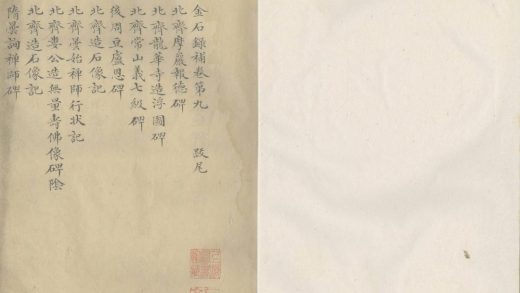 金石録補卷第九 跋尾
北齊摩嚴報德碑
北齊龍華寺造浮圖碑
北齊常山義七級碑
後周豆盧恩碑
北齊造石像記
北齊晏始禪師行狀記
北齊婁公造無量壽佛像碑陰
北齊造石像記
隋晏詢禪師碑